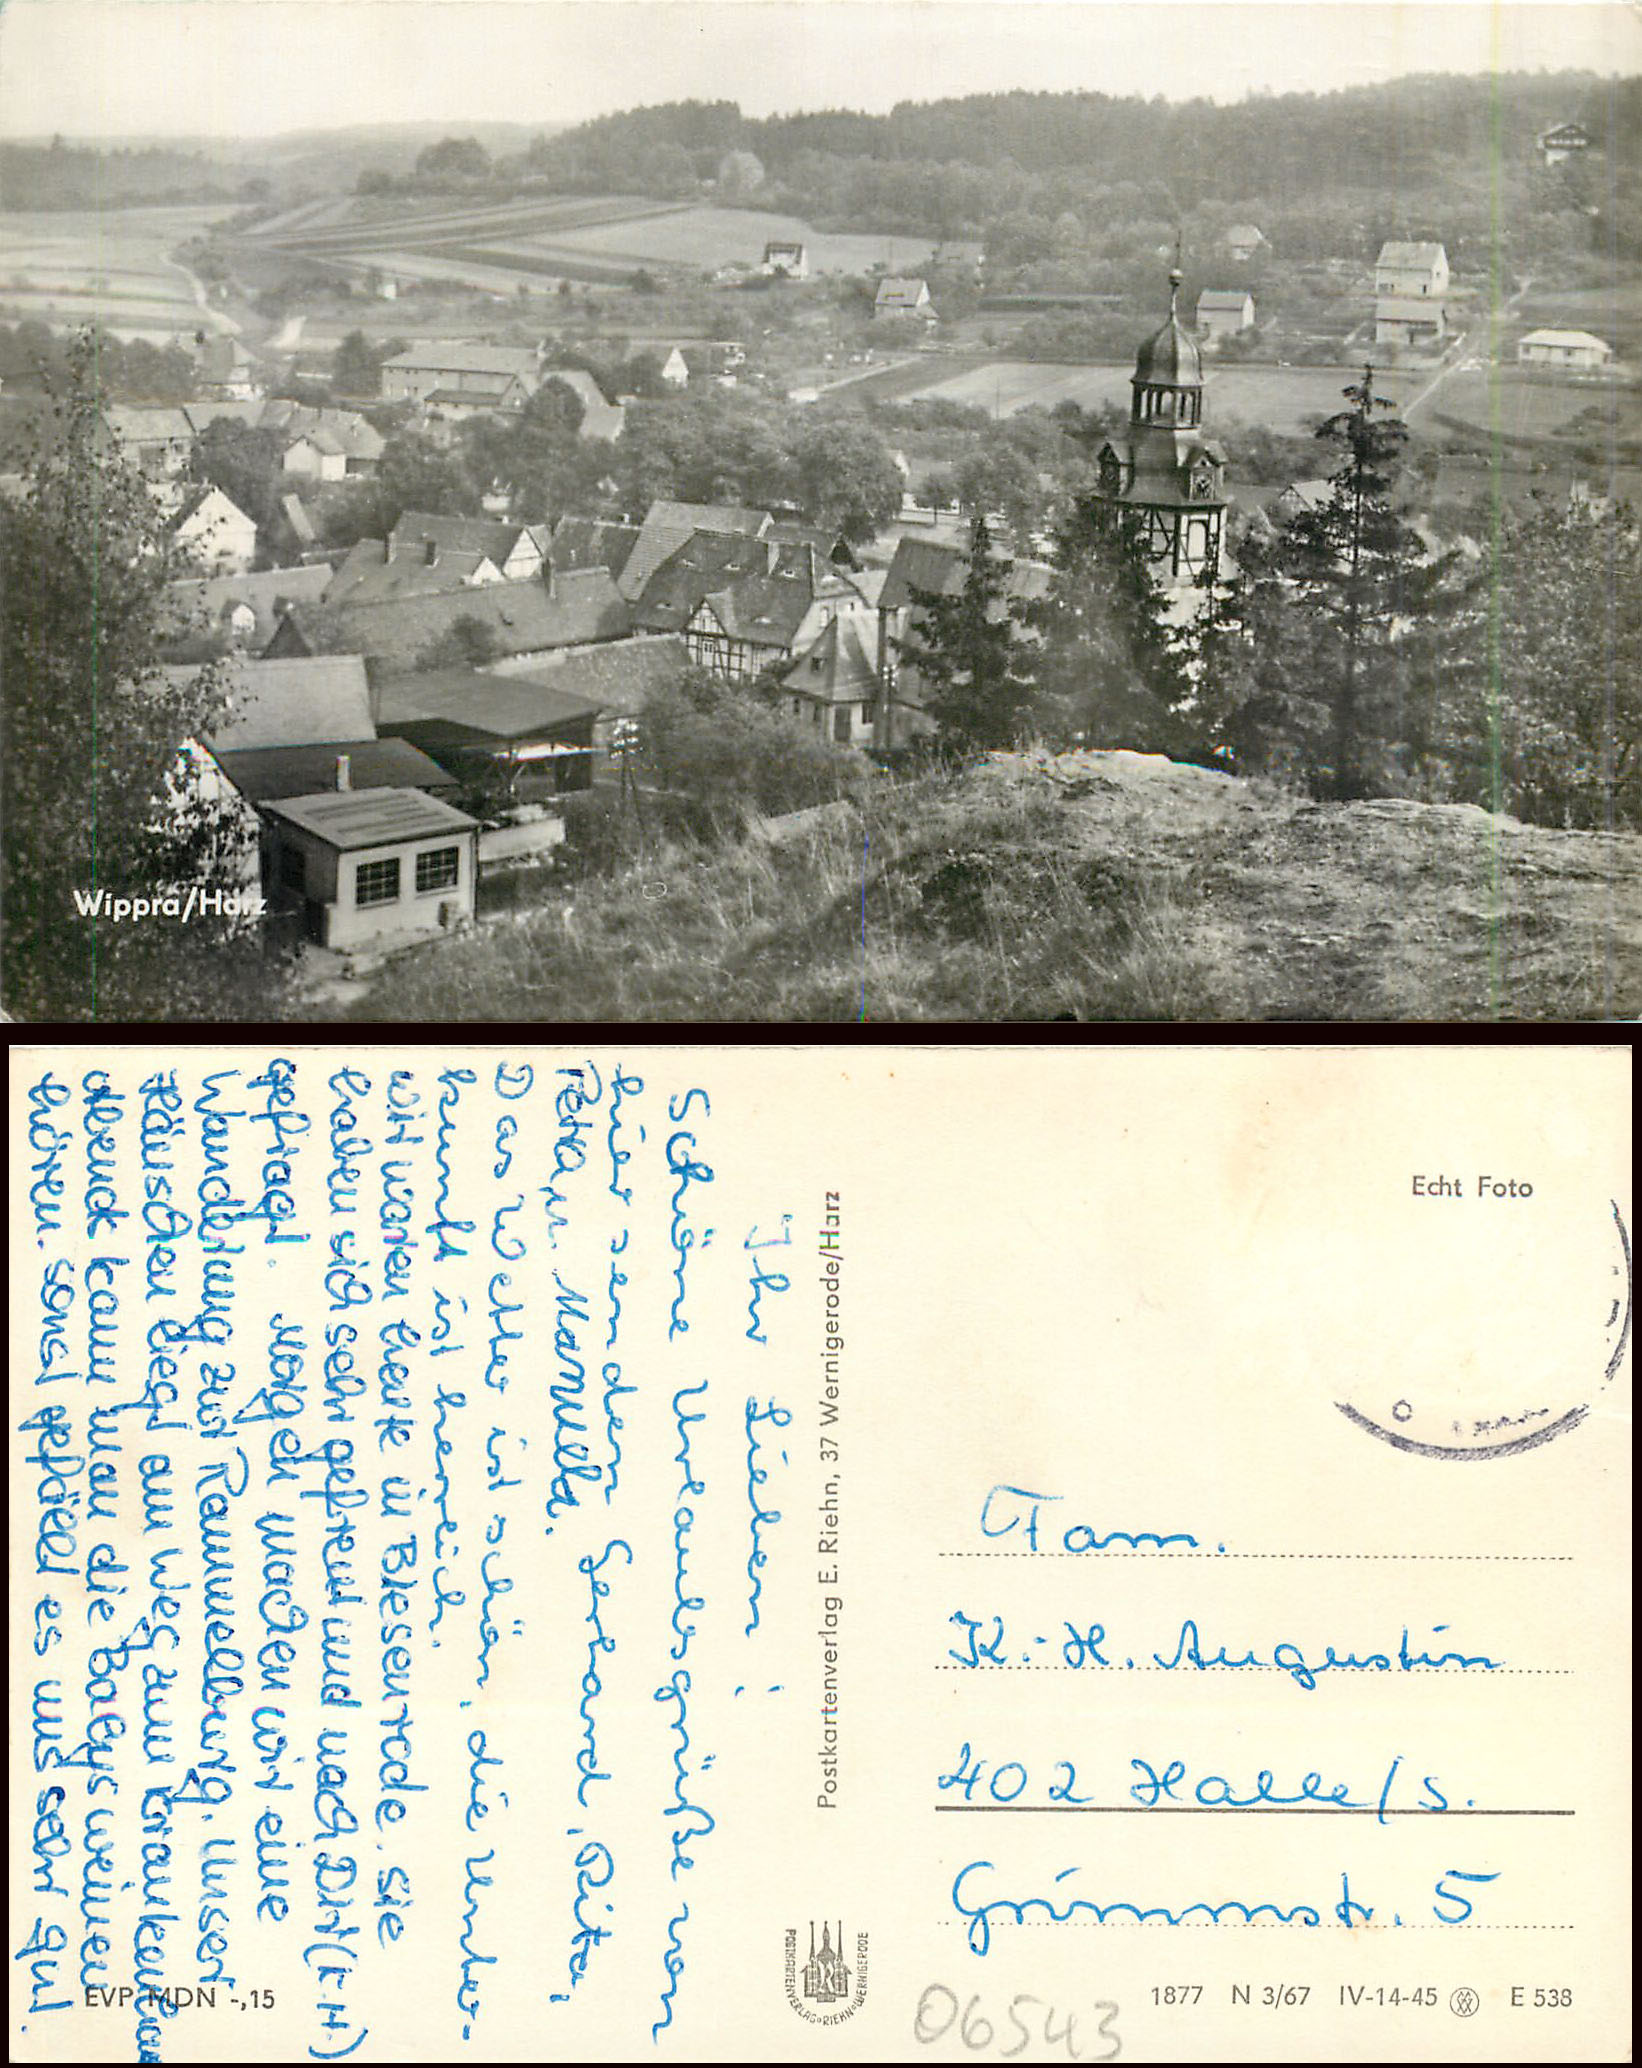 Wippra/Harz
Ihr Lieben!
Schöne Urlaubsgrüße von
hier senden Gerhard, Rita,
Petra u. Manuela.
Das Wetter ist schön, die Unter-
kunft ist herrlich.
Wir waren heute in Biesenrode. Sie
haben sich sehr gefreut und nach Dir (K.H.)
gefragt. Morgen machen wir eine
Wanderung zur Rammelburg. Unser
Häuschen liegt am Weg zum Krankenhaus
Abends kann man die Babys weinen
hören. Sonst gefällt es uns sehr gut.
EVP MDN -,15
Postkartenverlag E. Riehn, 37 Wernigerode/Harz
POSTKARTENVERLAG RIEHN WERNIGERODE
Echt Foto
Fam.
K.-H. Augustin
402 Halle/S.
Grimmstr. 5
1877 N 3/67 IV-14-45 E 538
06543